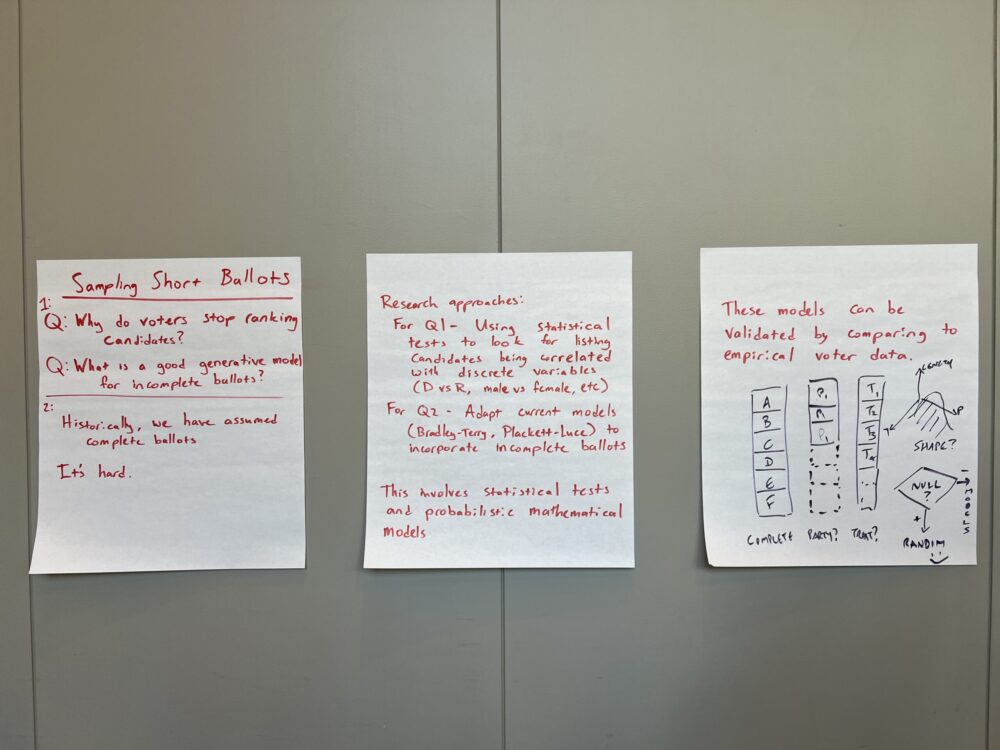 Sampling Short Ballots
1:
Q: Why do voters stop ranking
candidates?
Q: What is a good generative model
for incomplete ballots?
2:
Historically, we have assumed
complete ballots
It's hard.
Research approaches:
For Q1 - Using statistical
tests to look for listing
candidates being correlated
with discrete variables
(D vs R, male vs female, etc)
For Q2 - Adapt current models
(Bradley-Terry, Plackett-Luce) to
incorporate incomplete ballots
This involves statistical tests
and probabilistic mathematical
models
These models can be
validated by comparing to
empirical voter data.
A
B
C
D
E
F
COMPLETE
P1
P1
PARTY?
T1
T2
T3
T4
TRAIT?
LENGTH
P
T
SHAPE?
NULL
?
-
MODELS
+
RANDOM